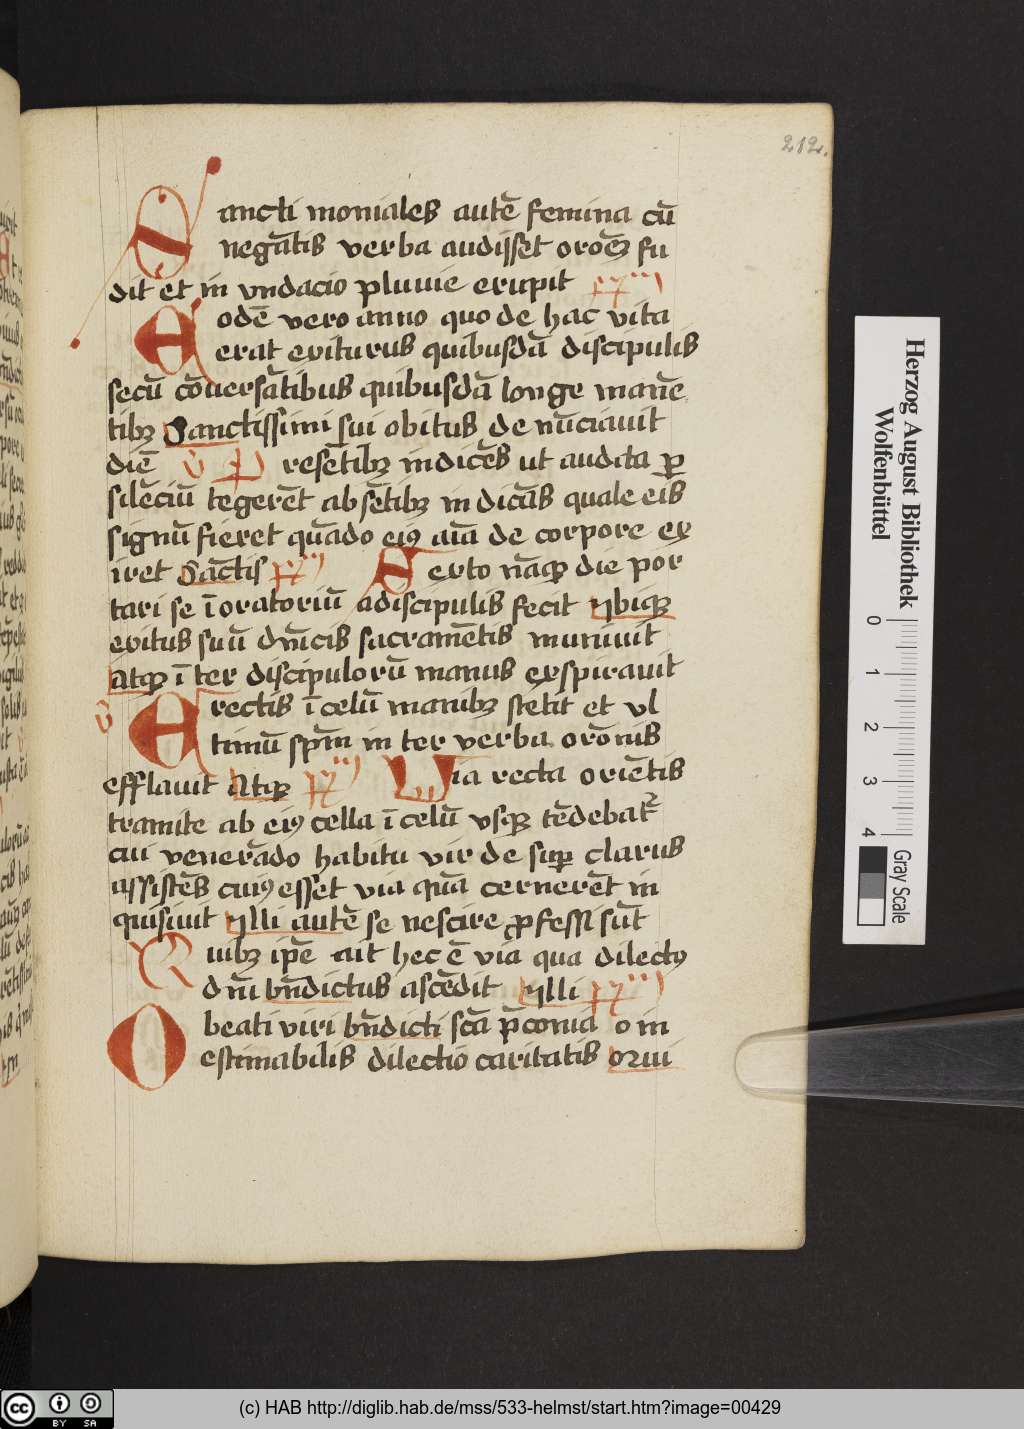 212.
Sancti moniales autē femina cū
negātis verba audisset oroēꝫ fu
dit et in vndacio pluuie erupit
Eodē vero anno quo de hac vita
erat exiturus quibusdā discipulis
secū cōuersātibus quibusdā longe manē
tibꝫ Sanctissimi sui obitus de nūciauit
diē v̄ Presētibꝫ indicēs ut audita ꝑ
silēciū tegerēt absētibꝫ in dicās quale eis
signū fieret quādo eiꝰ aīa de corpore ex
iret Sāctis Tercio nāqꝫ die por
tari se ī oratoriū a discipulis fecit ybiqꝫ
exitus suū dn̄icis sacramētis muniuit
Atqꝫ īter discipuloru᷒ manus exspirauit
v̄ Erectis ī celū manibꝫ stetit et vl
timū spm̄ in ter verba orōnis
efflauit Atqꝫ Uia recta oriētis
tramite ab eiꝰ cella ī celū vsqꝫ tēdebat᷑
cui venerādo habitu vir de suꝑ clarus
assistēs cuiꝰ esset via quā cernerēt in
quisiuit ylli autē se nescire ꝓfessi sūt
Quibꝫ ip̄e ait hec ē via qua dilectꝰ
dn̄i bn̄dictus ascēdit ylli
O beati viri bn̄dicti scā p̄conia o in
estimabilis dilectio caritatis Qui
Herzog August Bibliothek
Wolfenbüttel
0 1 2 3 4
Gray Scale
cc BY SA
(c) HAB http://diglib.hab.de/mss/533-helmst/start.htm?image=00429